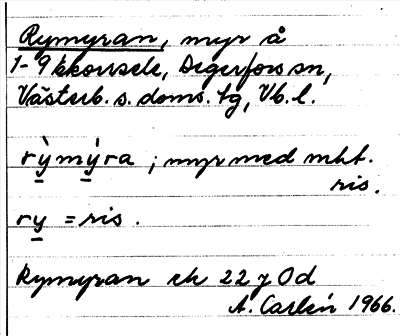 Rymyran, myr å
1-9 kkorrsele, Degerfors sn,
Västerb. s. doms. tg, Vb. l.
rỳmýra ; myr med mkt.
ris.
ry = ris.
Rymyran ek 22 J Od
A. Carlén 1966.